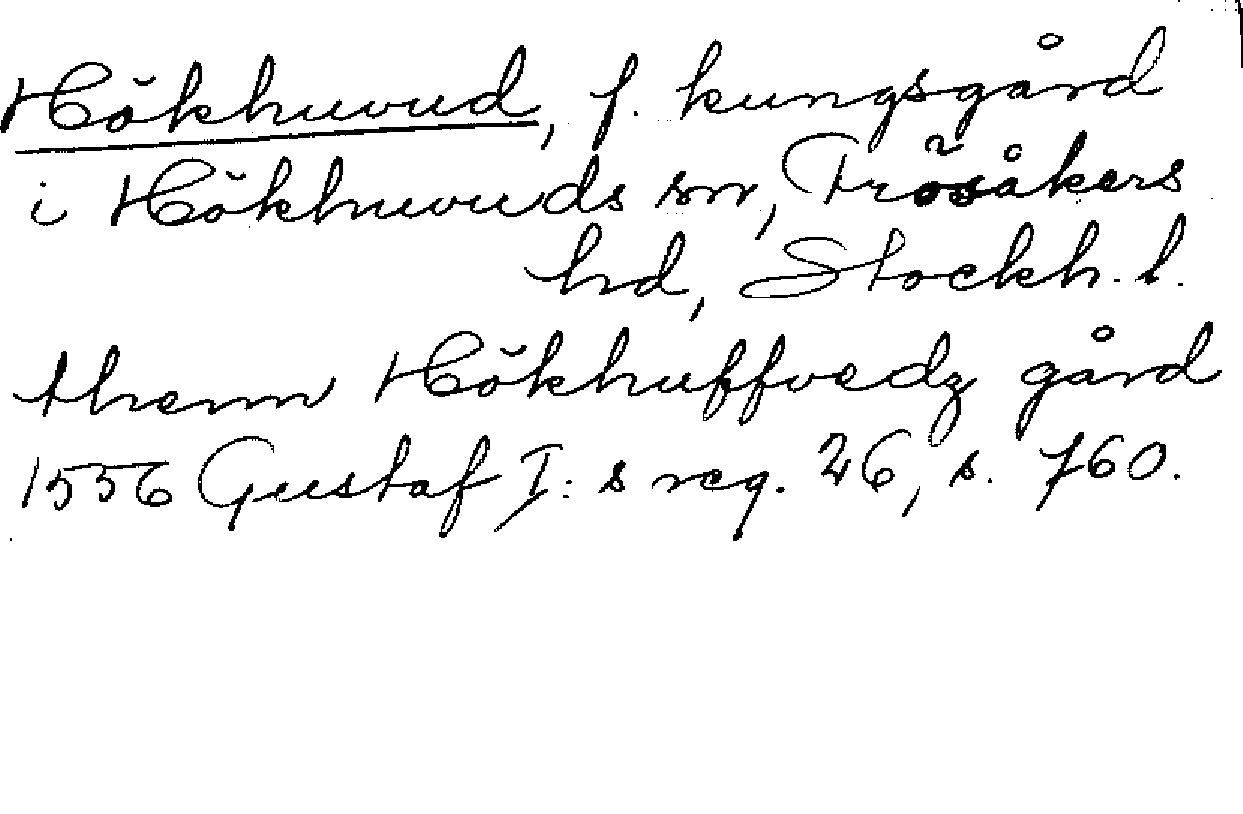 Hökhuvud, f. kungsgård
i Hökhuvuds sn, Frösåkers
hd, Stockh. l.
thenn Hökhuffvedz gård
1556 Gustaf I: s reg. 26, s. 760.